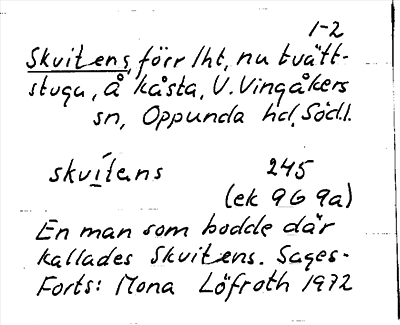 1-2
Skvitens, förr lht, nu tvätt-
stuga, Å kåsta, V. Vingåkers
sn, Oppunda hd, Södl.
skvítens 245
(ek 9G 9a)
En man som bodde där
kallades Skvitens. Sages-
Forts: Mona Löfroth 1972